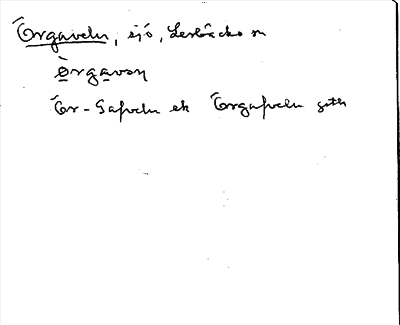 Örgaveln, sjö, Lerbäcks sn
Òrgavạn
Ör-Gafveln ek Örgafveln gstk